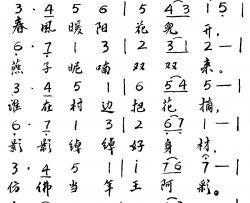 3 · 4 5 6 | 5 4 3 i 5 |
春 風 暖 阳 花 兒 开,
6 · 7 1 3 | 2 3 1 2 — |
燕 子 呢 喃 双 双 来。
3 · 4 5 1 | 6 5 4 5 — |
谁 在 村 边 把 花 摘,
6 · 7 1 3 | 2 6 7 1 — |
影 影 绰 绰 好 身 材,
3 · 4 5 1 | i 7 6 7 — |
仿 佛 当 年 王 阿 彩。